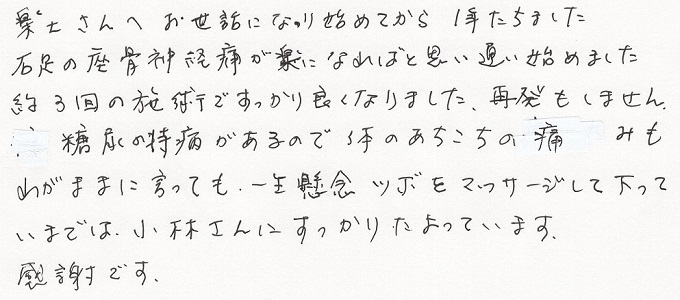 楽士さんへ お世話になり始めてから 1年たちました
右足の座骨神経痛が楽になればと思い通い始めました
約3回の施術ですっかり良くなりました、再発もしません。
糖尿の持病があるので 体のあちこちの 痛 みも
わがままに言っても、一生懸念 ツボをマッサージして下って
いまでは、小林さんにすっかりたよっています。
感謝です。